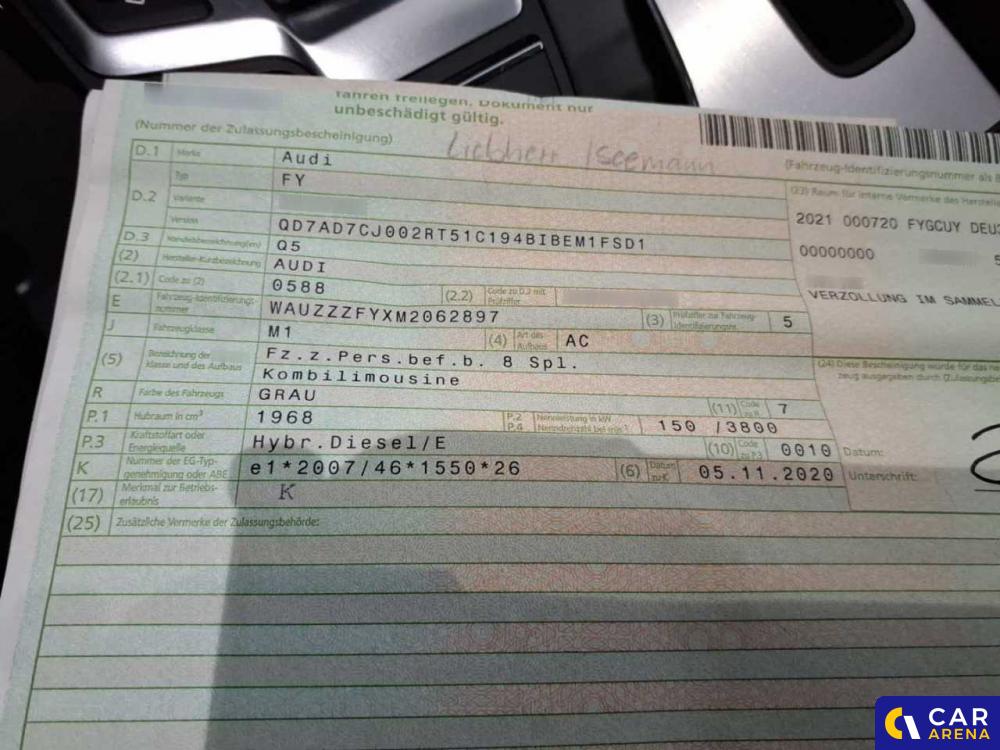 fahren freilegen. Dokument nur
unbeschädigt gültig.
(Nummer der Zulassungsbescheinigung)
Liebherr
(Fahrzeug-Identifizierungsnummer als
D.1 Marke Audi
Typ FY
D.2 Variante
Version QD7AD7CJ002RT51C194BIBEM1FSD1
D.3 Handelsbezeichnung(en) Q5
(2) Hersteller-Kurzbezeichnung AUDI
(2.1) Code zu (2) 0588 (2.2) Code zu D.2 mit Prüfziffer
E Fahrzeug-Identifizierungs-nummer WAUZZZFYXM2062897 (3) Prüfziffer zur Fahrzeug-Identifizierungsnr. 5
J Fahrzeugklasse M1 (4) Art des Aufbaus AC
(5) Bezeichnung der klasse und des Aufbaus Fz.z.Pers.bef.b. 8 Spl.
Kombilimousine
R Farbe des Fahrzeugs GRAU (11) Code zu R 7
P.1 Hubraum in cm³ 1968 P.2 P.4 Nennleistung in kW Nenndrehzahl bei min⁻¹ 150 /3800
P.3 Kraftstoffart oder Energiequelle Hybr.Diesel/E (10) Code zu P.3 0010
K Nummer der EG-Typ-genehmigung oder ABE e1*2007/46*1550*26 (6) Datum zu K 05.11.2020
(17) Merkmal zur Betriebs-erlaubnis K
(25) Zusätzliche Vermerke der Zulassungsbehörde:
(23) Raum für interne Vermerke des Herstellers
2021 000720 FYGCUY DEU
00000000
VERZOLLUNG IM SAMMEL
(24) Diese Bescheinigung wurde für das
zeug ausgegeben durch (Zulassungsb
Datum:
Unterschrift:
CAR
ARENA